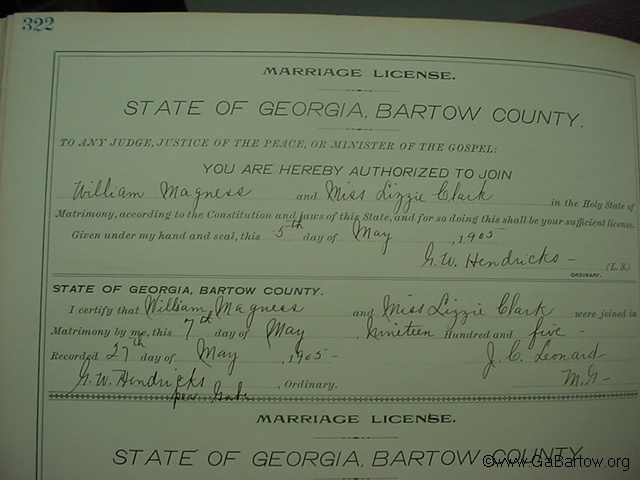 322
MARRIAGE LICENSE.
STATE OF GEORGIA, BARTOW COUNTY.
TO ANY JUDGE, JUSTICE OF THE PEACE, OR MINISTER OF THE GOSPEL:
YOU ARE HEREBY AUTHORIZED TO JOIN
William Magness and Miss Lizzie Clark in the Holy State of
Matrimony, according to the Constitution and laws of this State, and for so doing this shall be your sufficient license.
Given under my hand and seal, this 5th day of May, 1905
G. W. Hendricks - (L. S.)
ORDINARY.
STATE OF GEORGIA, BARTOW COUNTY.
I certify that William Magness and Miss Lizzie Clark were joined in
Matrimony by me, this 7th day of May, nineteen Hundred and five -
Recorded 27th day of May, 1905 - J. C. Leonard
G. W. Hendricks, Ordinary. M. G. -
MARRIAGE LICENSE.
STATE OF GEORGIA, BARTOW COUNTY.
©www.GaBartow.org